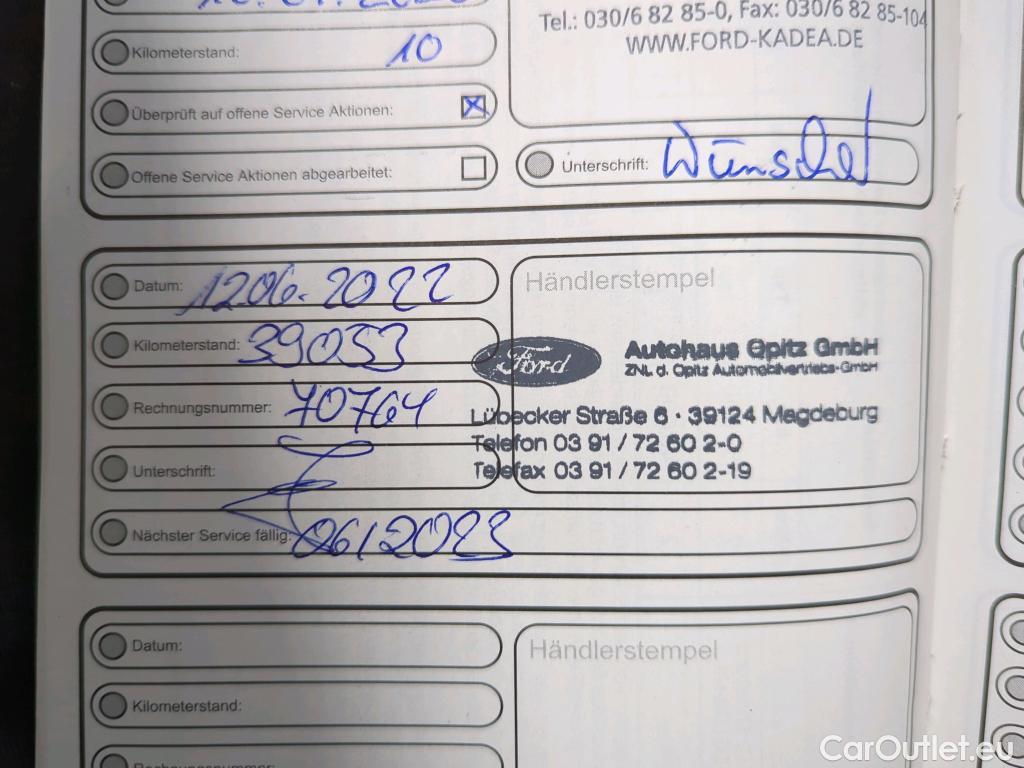 Tel.: 030/6 82 85-0, Fax: 030/6 82 85-104
WWW.FORD-KADEA.DE
Kilometerstand: 10
Überprüft auf offene Service Aktionen:
Offene Service Aktionen abgearbeitet:
Unterschrift: Wünschel
Datum: 12.06.2022
Händlerstempel
Kilometerstand: 39053
Ford
Autohaus Opitz GmbH
ZNL d. Opitz Automobilvertriebs-GmbH
Rechnungsnummer: 70764
Lübecker Straße 6 · 39124 Magdeburg
Telefon 03 91 / 72 60 2-0
Unterschrift:
Telefax 03 91 / 72 60 2-19
Nächster Service fällig: 06/2023
Datum:
Händlerstempel
Kilometerstand:
Rechnungsnummer:
CarOutlet.eu